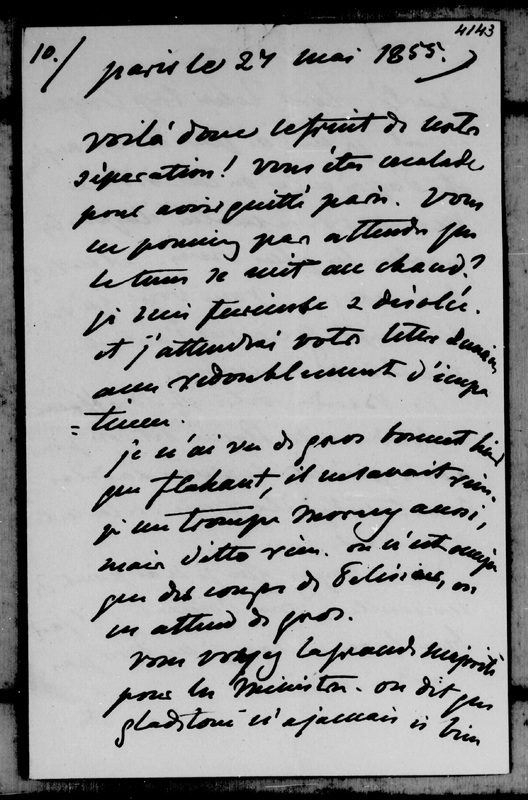 4143
10./ paris le 27 mai 1855.
voilà donc le fruit de notre
séparation! vous êtes malade
pour avoir quitté paris. Vous
ne pouviez pas attendre que
le tems se mit au chaud?
je suis furieuse & désolée.
et j'attendrai votre lettre demain
avec redoublement d'impa
=tience.
je n'ai vu de gros bonnet hier
que flahaut, il ne savait rien.
je me trompe Morny aussi,
mais ditto rien. on n'est occupé
que des coups de Pelissier, on
en attend de gros.
vous voyez la grande majorité
pour les ministres. on dit que
gladstone n'a jamais si bien